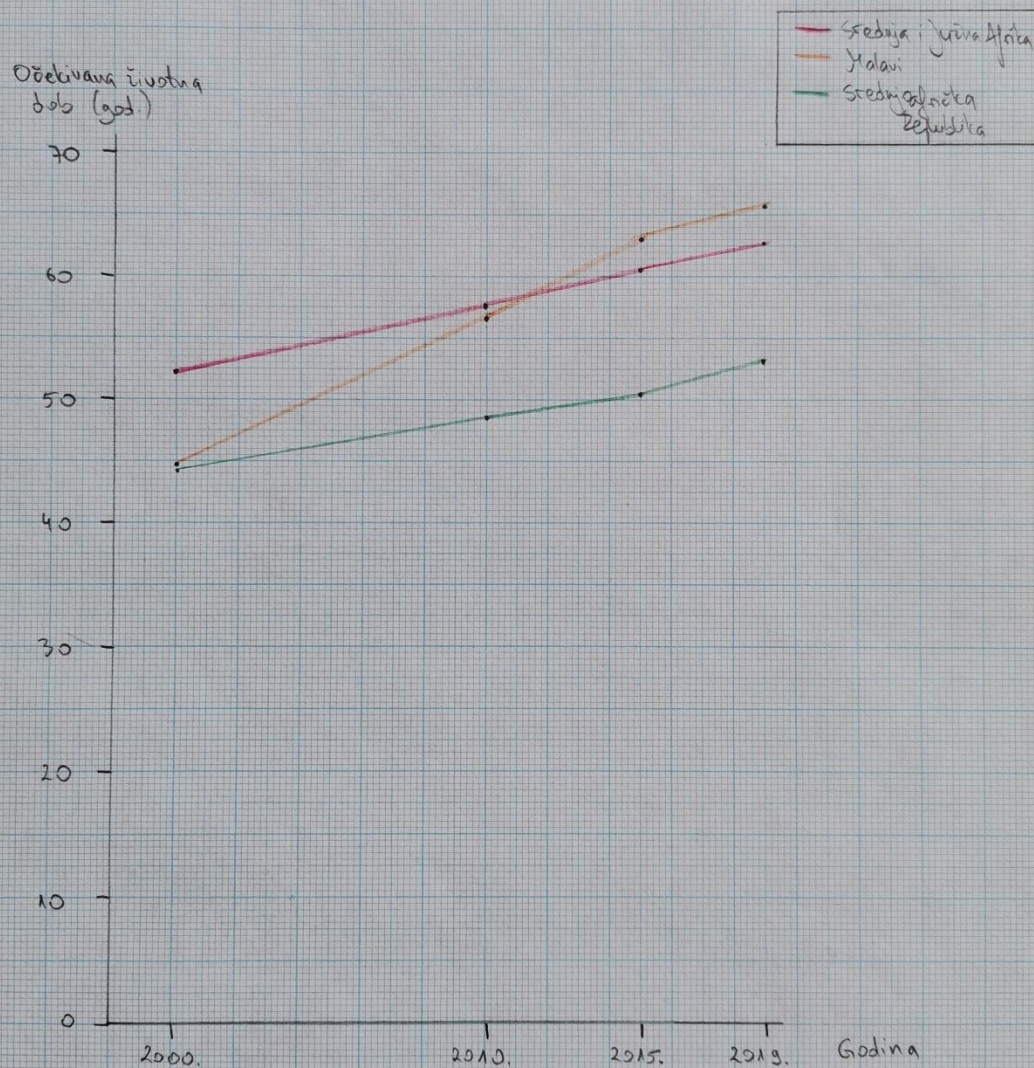 Srednja i Južna Afrika
Malavi
Srednjoafrička
Republika
Očekivana životna
dob (god.)
70
60
50
40
30
20
10
0
2000.
2010.
2015.
2019.
Godina